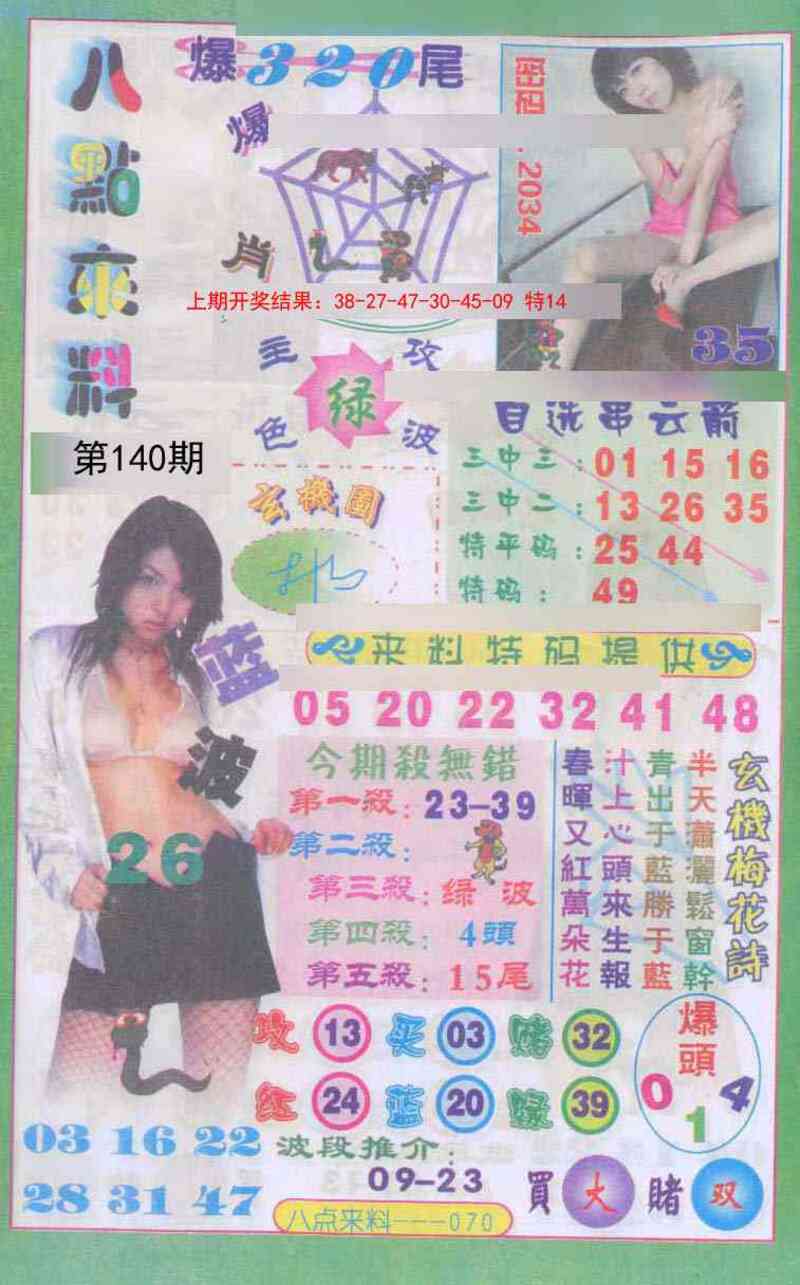 八點來料
爆320尾
爆肖
2034
35
上期开奖结果：38-27-47-30-45-09 特14
主攻
绿
色波
第140期
自选串云箭
三中三：01 15 16
三中二：13 26 35
特平码：25 44
特码：49
玄機圖
蓝波
26
来料特码提供
05 20 22 32 41 48
今期殺無錯
第一殺：23-39
第二殺：
第三殺：绿波
第四殺：4頭
第五殺：15尾
玄機梅花詩
半天瀟灑鬆窗幹
青出于藍勝于藍
汁上心頭來生報
春暉又紅萬朵花
攻 13 买 03 赌 32
红 24 蓝 20 绿 39
爆頭
0 1 4
03 16 22
28 31 47
波段推介：
09-23
買大 賭双
八点来料---070